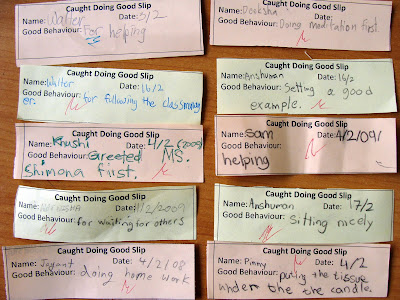 Name: Walter Date: 5/2
Good Behaviour: For helping
Caught Doing Good Slip
Name: Walter Date: 16/2
Good Behaviour: for following the classmonitor
er.
Caught Doing Good Slip
Name: Khushi Date: 4/2 (2009)
Good Behaviour: Greeted MS.
shimona first.
Caught Doing Good Slip
Name: Date: 1/2/2009
Good Behaviour: for waiting for others
Caught Doing Good Slip
Name: Jayant Date: 4/2/08
Good Behaviour: doing home work
Name: Deeksha Date:
Good Behaviour: Doing meditation first.
Caught Doing Good Slip
Name: Anshuman Date: 16/2
Good Behaviour: Setting a good
example.
Caught Doing Good Slip
Name: Sam Date: 4/2/09
Good Behaviour:
helping
Caught Doing Good Slip
Name: Anshuman Date: 17/2
Good Behaviour: Sitting nicely
Caught Doing Good Slip
Name: Pinny Date: 4/2
Good Behaviour: puting the tissue
under the the candle.